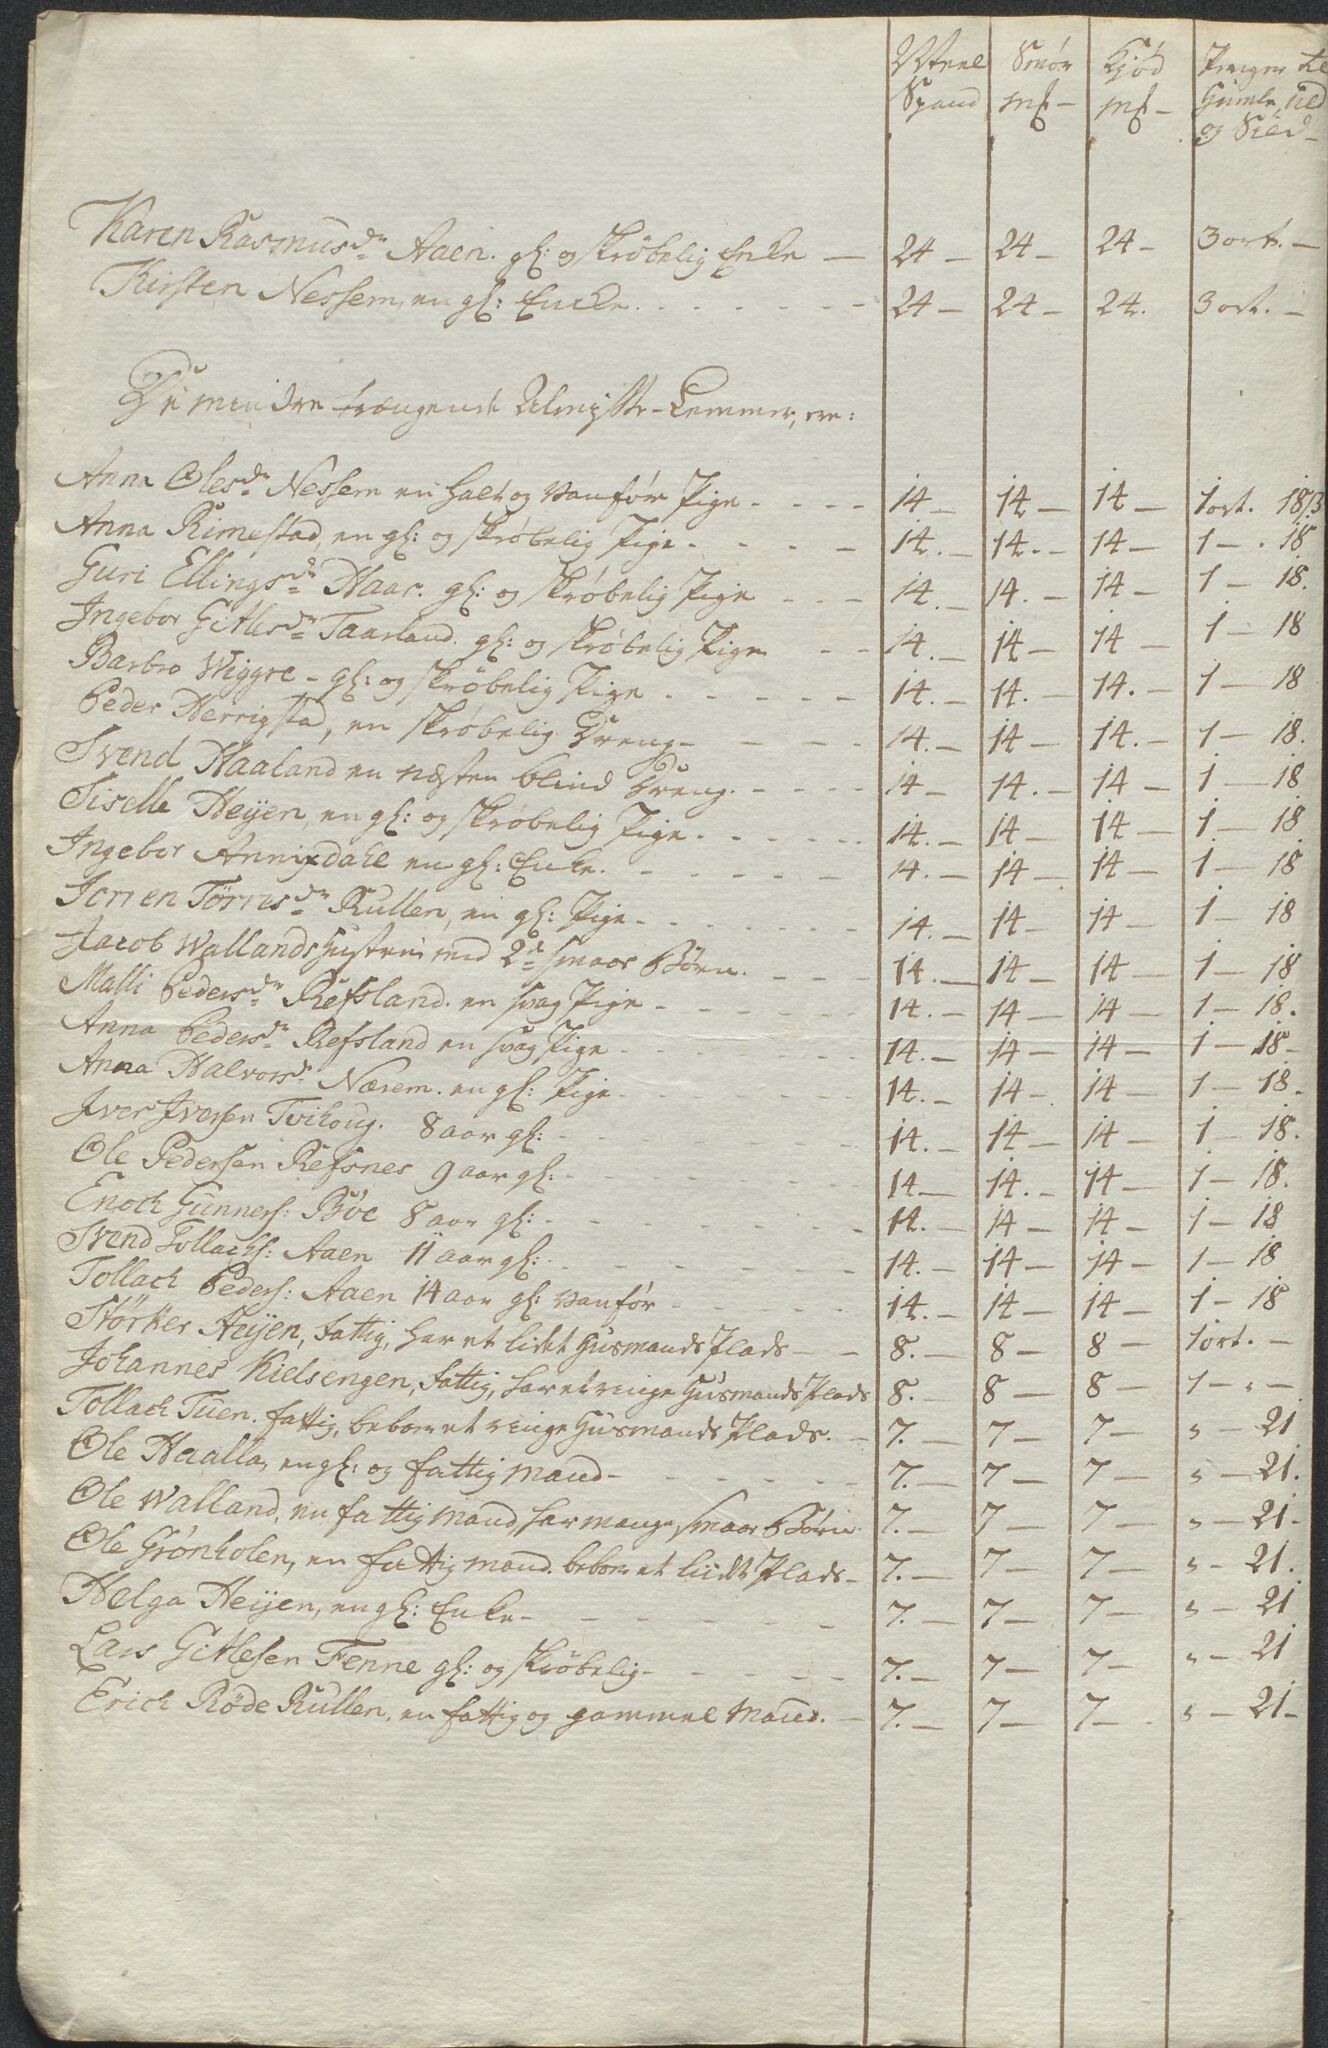 Meel Smør Kiød Penger til
Spand mk - mk - Humle, Uld
og Sild -
Karen Rasmusdr Aaen. gl: og skrøbelig Enke — 24 — 24 — 24 — 3 ort. —
Kirsten Nessem, en gl: Encke. - - - - - 24 — 24 — 24. 3 ort. —
De mindre trængende Almisse-Lemmer, ere:
Anna Olesdr Nessem en halt og vanfør Pige - - - - 14 — 14 — 14 — 1 ort. 18 s
Anna Rimestad, en gl: og skrøbelig Pige - - - - 14. — 14. — 14 — 1 — . 18
Guri Ellingsdr Haar. gl: og skrøbelig Pige - - - 14. — 14. — 14 — 1 — 18.
Ingebor Gitlesdr Taarland. gl: og skrøbelig Pige - - 14. — 14 — 14 — 1 — 18
Barbro Wiggre - gl: og skrøbelig Pige - - - - - 14. — 14. — 14. — 1 — 18
Peder Herrigstad, en skrøbelig Dreng - - - - 14. — 14 — 14. — 1 — 18.
Svend Haaland en næsten blind Dreng. - - - - 14 — 14. — 14 — 1 — 18
Siselle Heÿen, en gl: og skrøbelig Pige - - - - - 14. — 14 — 14 — 1 — 18
Ingebor Annixdahl en gl: Enke. - - - - - - 14. — 14 — 14 — 1 — 18
Jorren Törresdr Rullen, en gl: Pige - - - - - - 14. — 14 — 14 — 1 — 18
Jacob Wallands Hustru med 2de smaae Børn. - - - 14. — 14 — 14 — 1 — 18
Malli Pedersdr Refsland. en svag Pige - - - - - 14. — 14 — 14 — 1 — 18.
Anna Pedersdr Refsland en svag Pige - - - - - - 14. — 14 — 14 — 1 — 18 -
Anna Halvorsdr Nærem. en gl: Pige - - - - - - 14. — 14 — 14 — 1 — 18.
Iver Iversen Tvihoug. 8 aar gl: - - - - - - - 14. — 14 — 14 — 1 — 18.
Ole Pedersen Refsnes 9 aar gl: - - - - - - - 14 — 14. — 14 — 1 — 18.
Enoch Gunners: Bøe 8 aar gl: - - - - - - - 14. — 14 — 14 — 1 — 18
Svend Tollachs: Aaen 11 aar gl: - - - - - - - 14. — 14 — 14 — 1 — 18
Tollach Peders: Aaen 14 aar gl: vanför - - - - - 14. — 14 — 14 — 1 — 18
Störker Heÿen, fattig, har et lidet Huusmands Plads - - 8. — 8 — 8 — 1 ort. —
Johannes Kielsengen, fattig, har et ringe Huusmands Plads 8. — 8 — 8 — 1 — „ —
Tollach Tuen. fattig, beboer et ringe Huusmands Plads. - 7. — 7 — 7 — „ — 21
Ole Haalla, en gl: og fattig Mand - - - - - - 7. — 7 — 7 — „ — 21.
Ole Walland, en fattig Mand, har mange smaae Børn 7. — 7 — 7 — „ — 21 -
Ole Grønholen, en fattig Mand. beboer et lidet Plads - 7. — 7 — 7 — „ — 21.
Helga Heijen, en gl: Enke - - - - - - - 7. — 7 — 7 — „ — 21
Lars Gitlesen Fenne gl: og skrøbelig - - - - - 7. — 7 — 7 — „ — 21
Erich Røde Rullen, en fattig og gammel Mand. - 7. — 7 — 7 — „ — 21 -